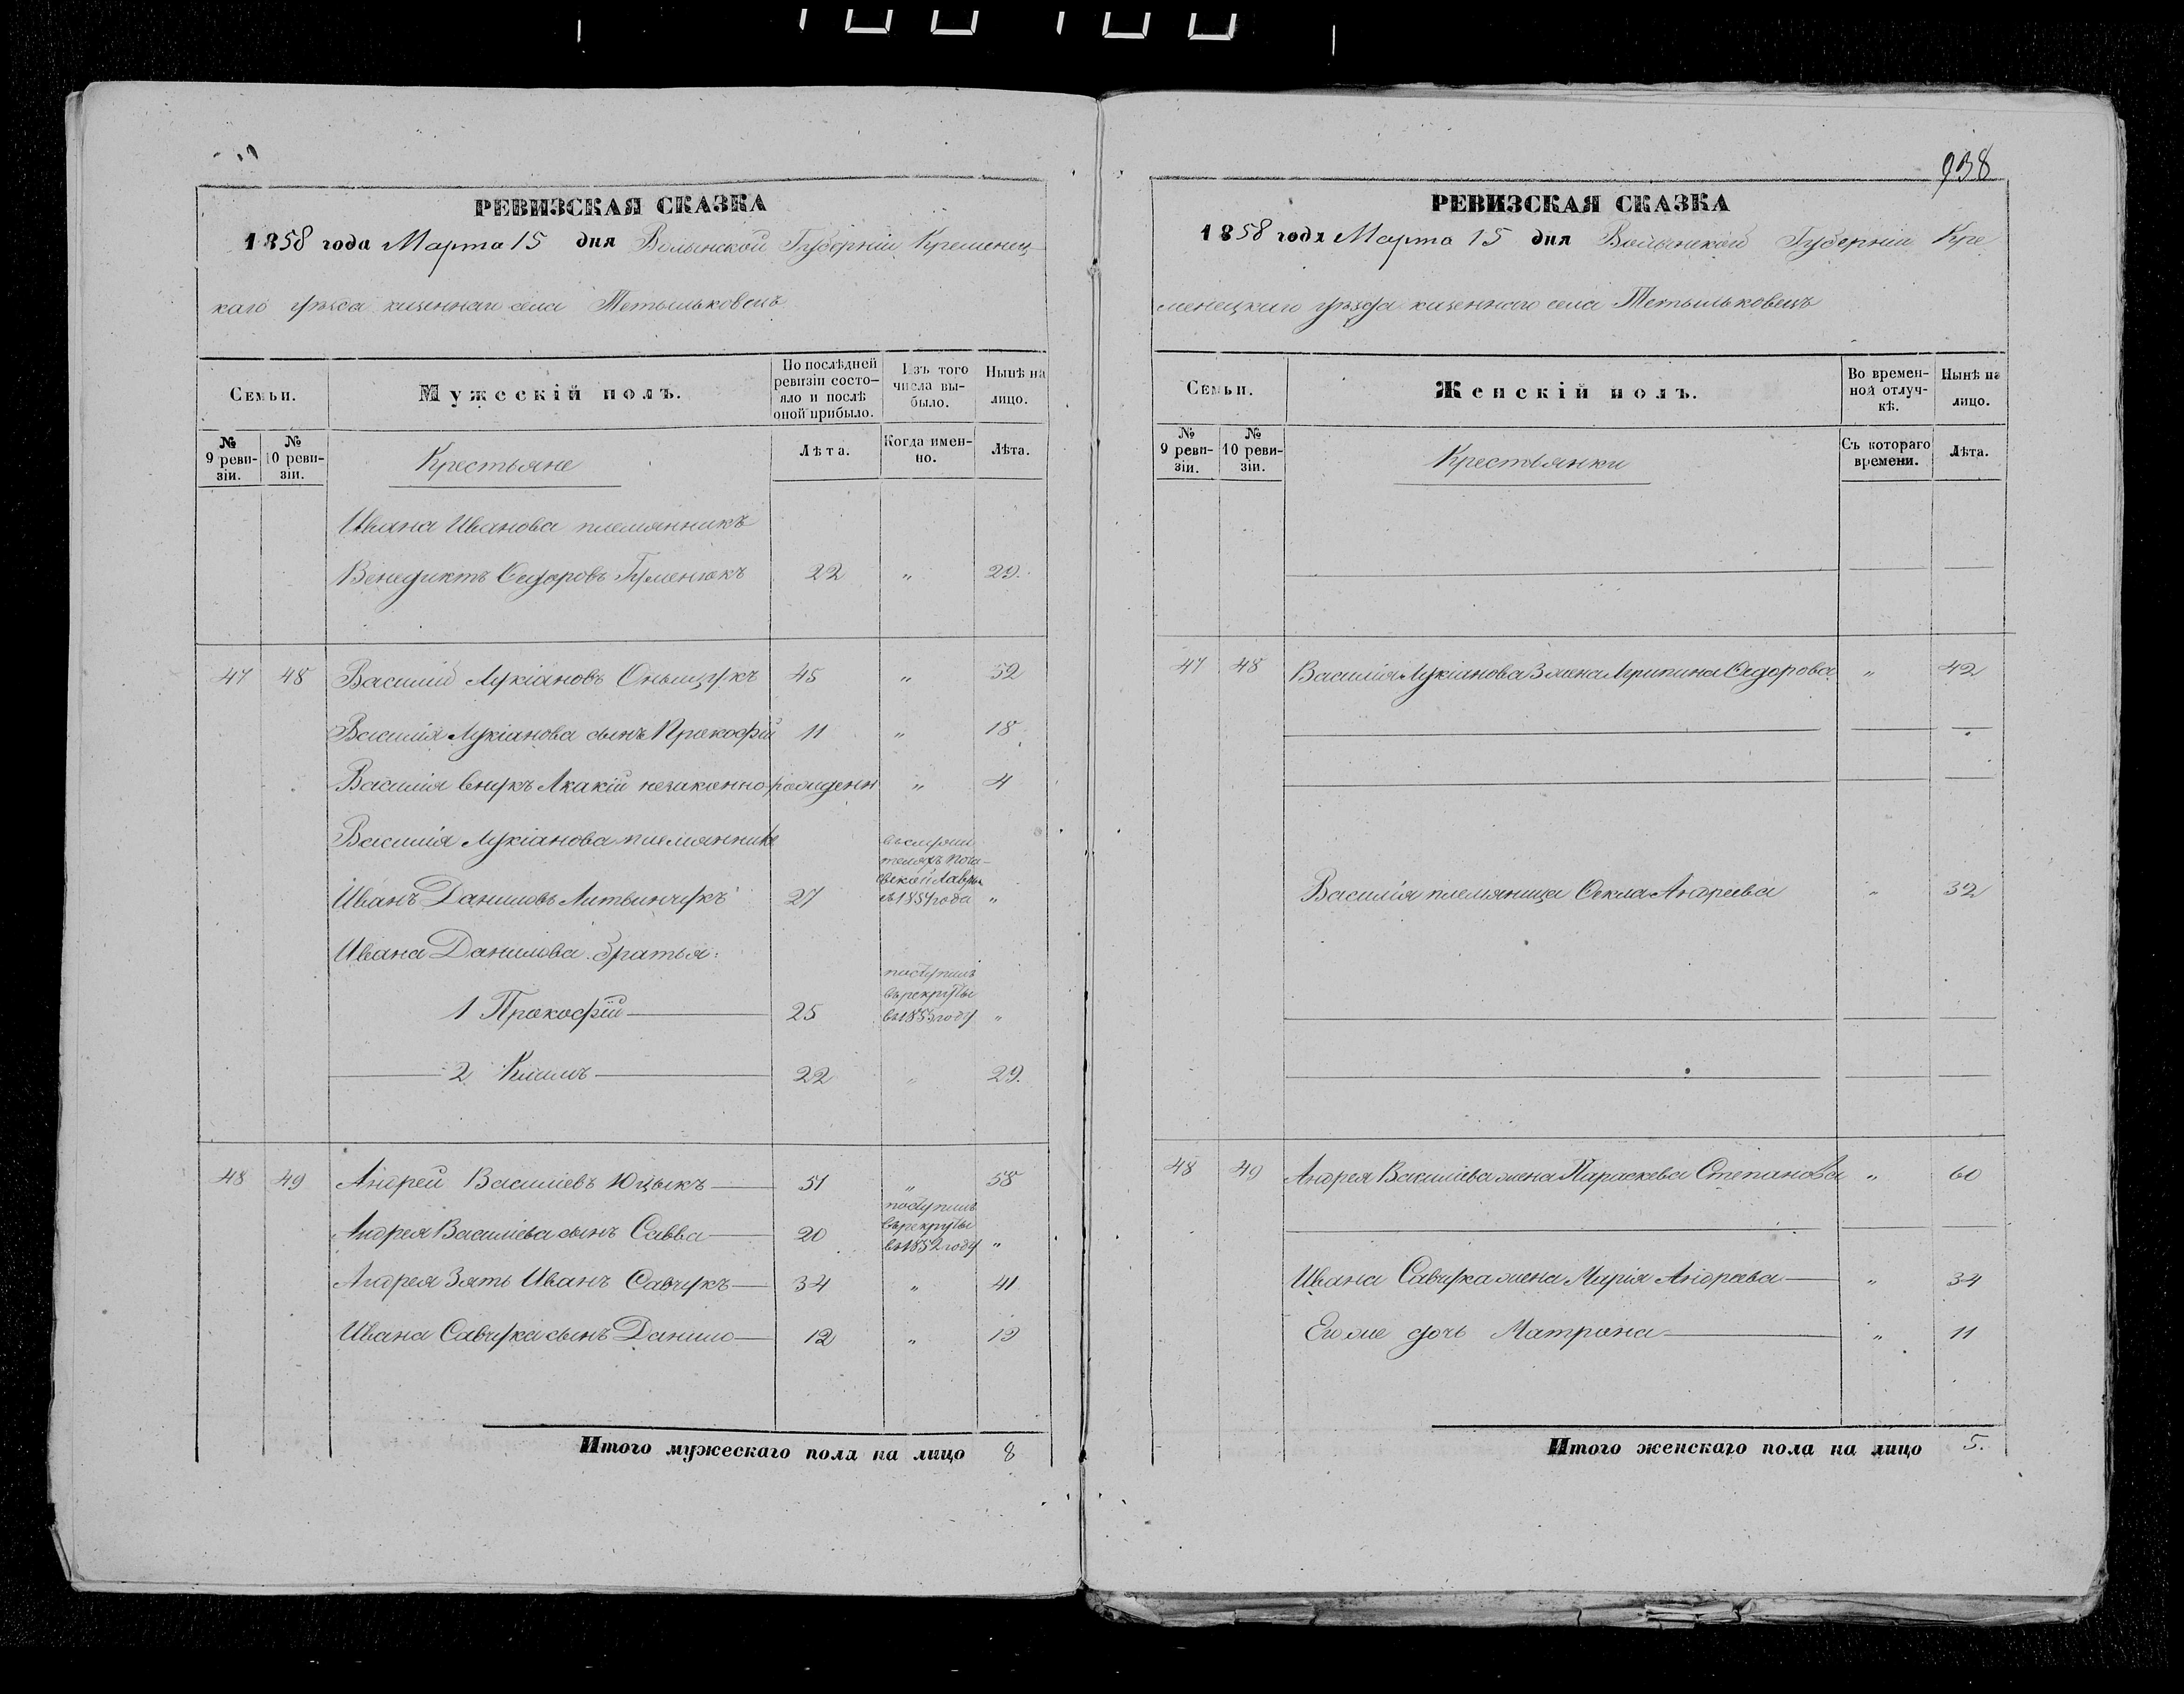 РЕВИЗСКАЯ СКАЗКА
1858 года Марта 15 дня Волынской Губерніи Кременец
каго уѣзда казеннаго села Тетыльковецъ
Семьи.
Мужескій полъ.
По послѣдней ревизіи состояло и послѣ оной прибыло.
Изъ того числа выбыло.
Нынѣ на лицо.
№ 9 ревизіи.
№ 10 ревизіи.
Крестьяне
Лѣта.
Когда именно.
Лѣта.
Ивана Иванова племянникъ
Венедиктъ Сидоровъ Гуменюкъ 22 " 29.
47 48 Василій Лукіановъ Онищукъ 45 " 52
Василія Лукіанова сынъ Прокофій 11 " 18
Василія внукъ Акакій незаконнорожденн " 4
Василія Лукіанова племянникъ
въ служи
теляхъ Поча-
евской Лавры
Иванъ Даниловъ Литвинчукъ 27 съ 1851 года "
Ивана Данилова братья:
поступилъ
въ рекруты
1 Прокофій 25 въ 1855 году "
2 Климъ 22 " 29.
48 49 Андрей Василіевъ Юцыкъ 51 " 58
поступилъ
въ рекруты
Андрея Василіева сынъ Савва 20 въ 1852 году "
Андрея Зять Иванъ Савчукъ 34 " 41
Ивана Савчука сынъ Данило 12 " 19
Итого мужескаго пола на лицо 8
938
РЕВИЗСКАЯ СКАЗКА
1858 года Марта 15 дня Волынской Губерніи Кре
менецкаго уѣзда казеннаго села Тетыльковецъ
Семьи.
Женскій полъ.
Во временной отлучкѣ.
Нынѣ на лицо.
№ 9 ревизіи.
№ 10 ревизіи.
Крестьянки
Съ котораго времени.
Лѣта.
47 48 Василія Лукіанова жена Агрипина Сидорова " 42
Василія племяница Фекла Андреева " 32
48 49 Андрея Василіева жена Параскева Степанова " 60
Ивана Савчука жена Марія Андреева " 34
Его же дочь Матрона " 11
Итого женскаго пола на лицо 5.